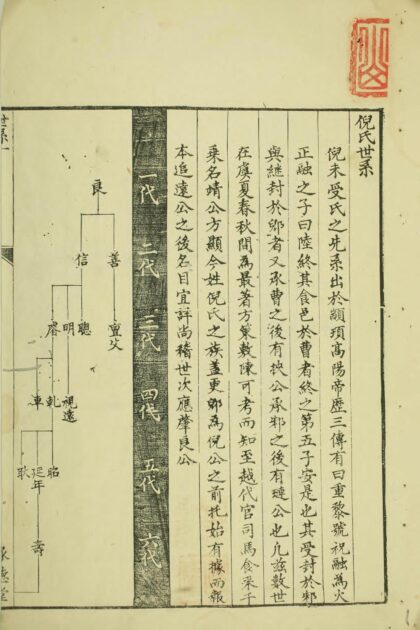 倪氏世系
倪未受氏之先系出於顓頊高陽帝歷三傳有曰重黎號祝融為火
正融之子曰陸終其食邑於曹者終之第五子安是也其受封於邾
與繼封於郳者又承曹之後有挾公承邾之後有璉公也凡茲數世
在虞夏春秋間為最著方策數陳可考而知至越代官司馬食采千
乘名靖公方顯今姓倪氏之族蓋更郳為倪公之前托始有據而報
本追遠公之後名目宜詳尚稽世次應肇良公
一代 二代 三代 四代 五代 六代
良
善 信
聰 明
視遠
昭 延年 耿
壽
世系一